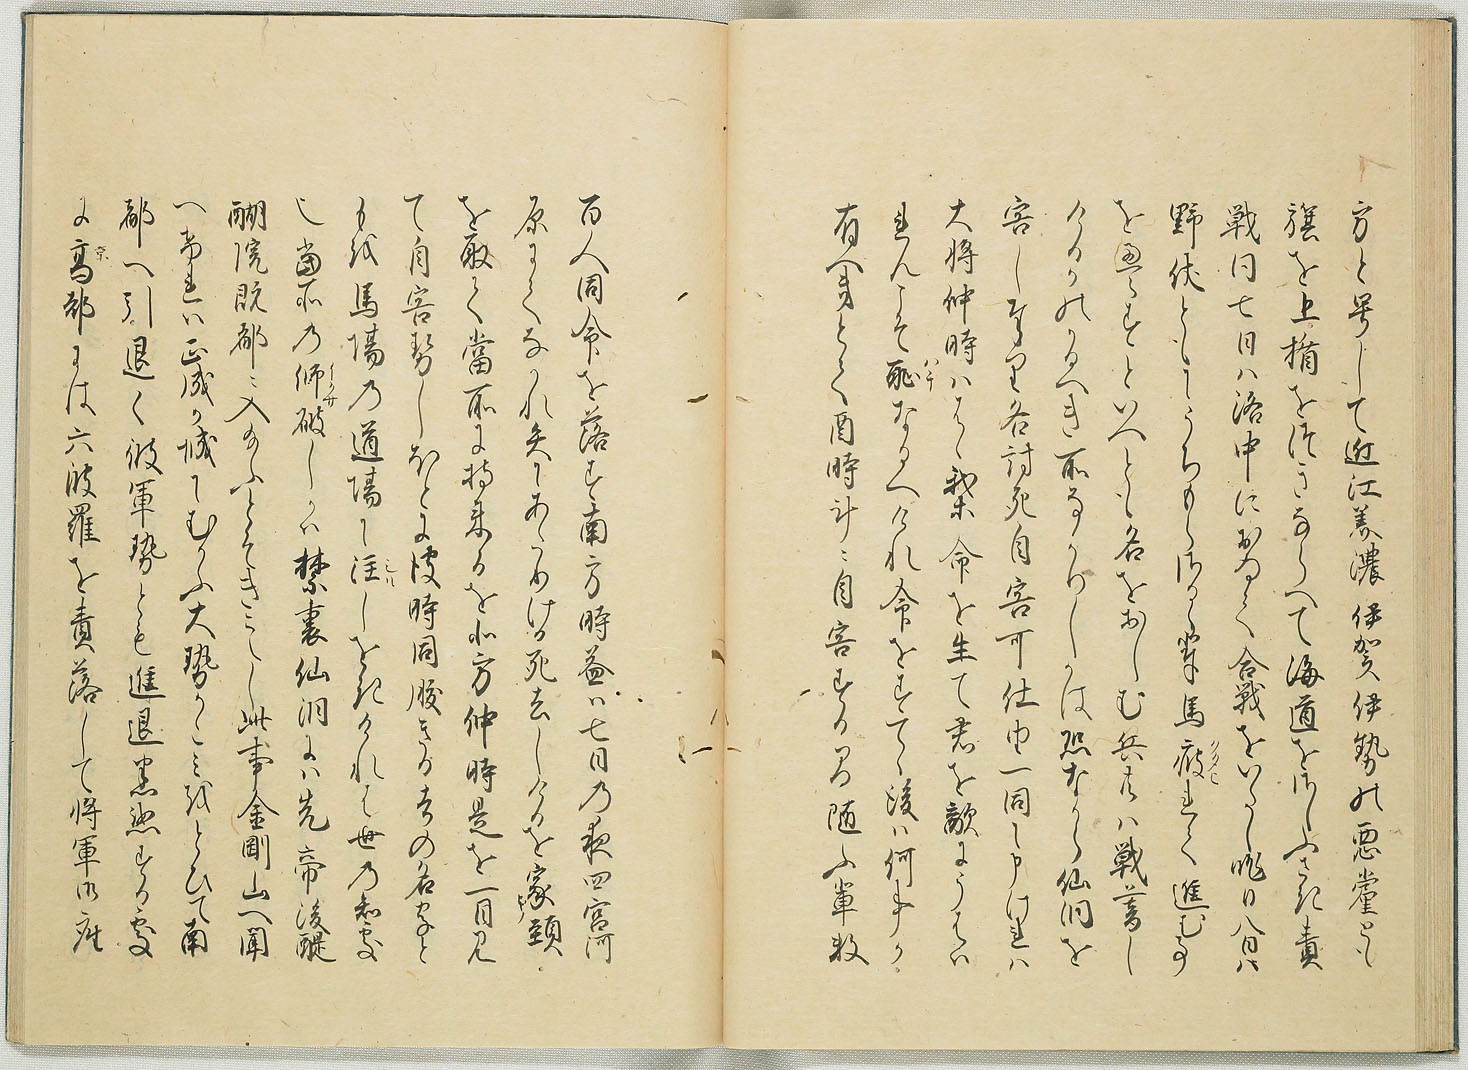 方と号して近江美濃伊賀伊勢の悪党とも
旗を上楯をつきならへて海道をさしふさき責
戦同七日ハ洛中におゐて合戦をいたし昨日八日ハ
野伏としてうちもらさる人馬疲れて進む事
をえすといへとも名をおしむ兵共ハ戦暮し
けるかのかるへき所なかりしかは恐なから仙洞を
害し奉り各討死自害可仕由一同に申けれハ
大将仲時ハはく我等命を生て君を敵にうはハ
れんこそ恥なるへけれ命をすてく後ハ何事か
有へきとて酉時計ニ自害する間随ふ輩数
百人同命を落す南方時益ハ七日乃夜四宮河
原にてなかれ矢にあたりける死去しけるを家頸
を取て当所に持来るを北方仲時是を一目見
て自害勢しほとに彼時同腹きる者の名字と
もを馬場乃道場に注しをきけれは世乃知処
也当所乃師破しかハ禁裏仙洞にハ先帝後醍
醐院既都ニ入給ふとそきこえし此事金剛山へ聞
へけれハ正成か城にむかふ大勢かこミをとひて南
都へ引退く彼軍勢とも進退惑する処
に高都には六波羅を責落して将軍御座